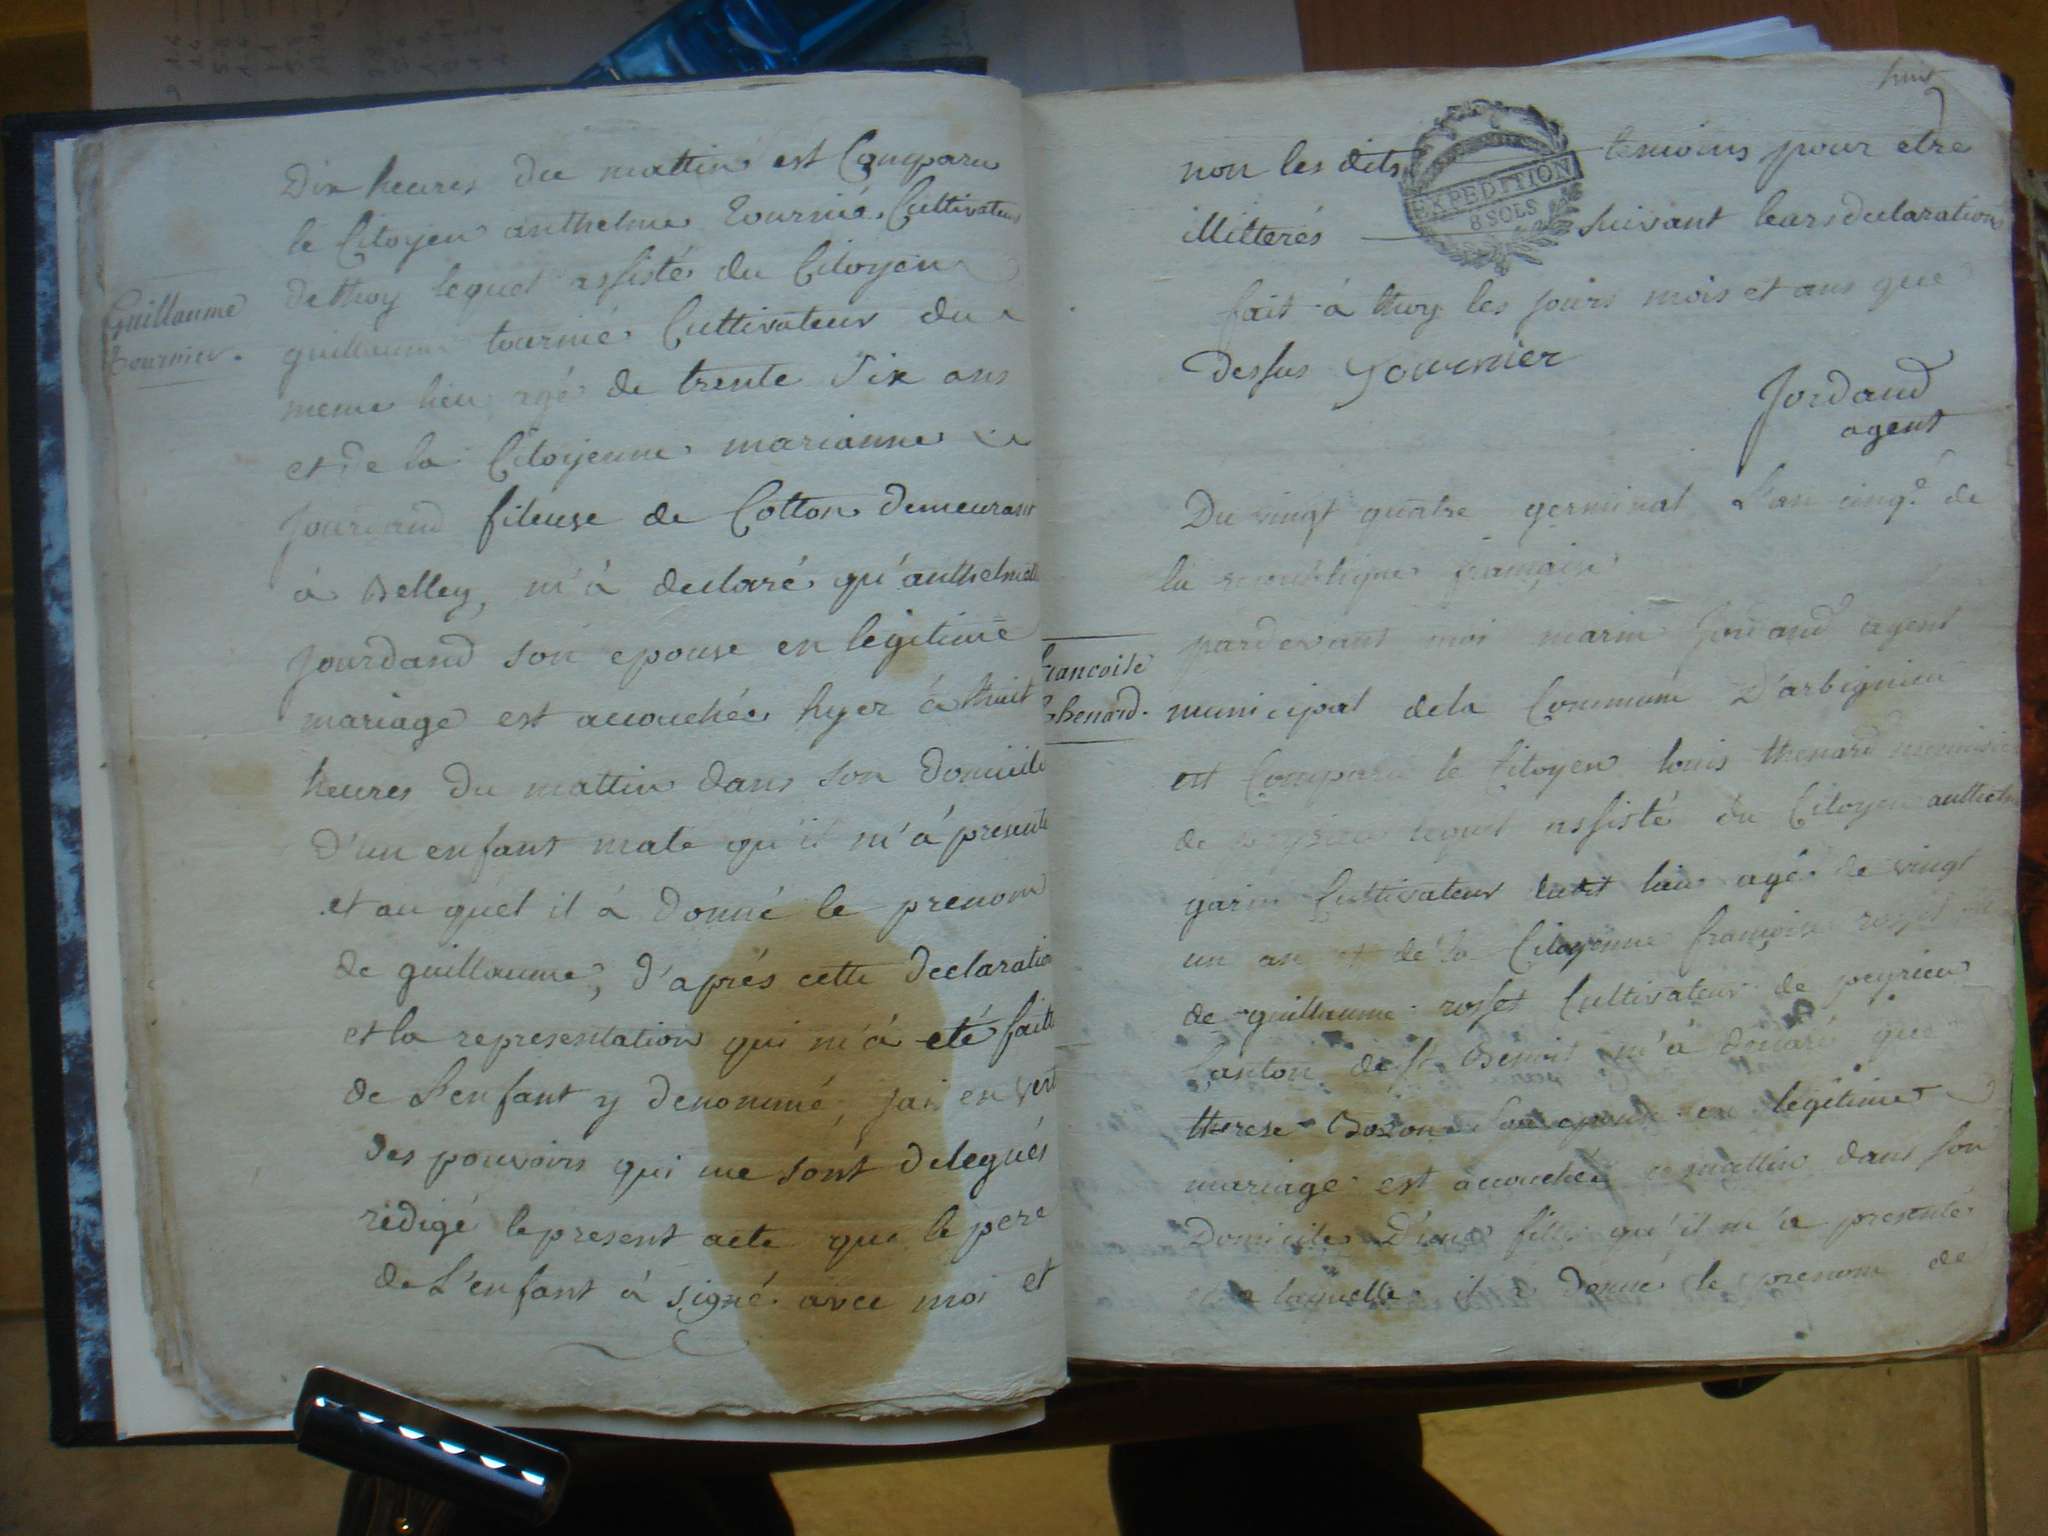 Dix heures du mattin est Comparu
le Citoyen anthelme tournié Cultivateur
de thoy lequel assisté du Citoyen
Guillaume
tournier.
guillaume tournié Cultivateur du
meme lieu agé de trente Six ans
et de la Citoyenne marianne
Jourdand fileuse de Cotton demeurant
à Belley, m'à declaré qu'anthelme
Jourdand son epouse en legitime
mariage est accouchée hyer à huit
heures du mattin dans son domicile
D'un enfant male qu'il m'à presenté
et au quel il à donné le prenom
de guillaume, d'aprés cette declaration
et la representation qui m'à eté faitte
de L'enfant y denommé, jai en vert
des pouvoirs qui me sont delegués
redigé le present acte que le pere
de L'enfant à signé avec moi et
huit
non les dits temoins pour etre
EXPEDITION
8 SOLS
illitterés suivant leurs declarations
fait à thoy les jours mois et ans que
dessus Tournier
Jordand
agent
Du vingt quatre germinal L'an cinq.e de
la republique françoise
pardevant moi marin Jordand agent
francoise
thenard.
municipal dela Commune D'arbignieu
est Comparu le Citoyen louis thenard
de peyrieu lequel assisté du Citoyen anthelme
garin Cultivateur dudit lieu agé de vingt
un an et de la Citoyenne françoise rosset
de guillaume rosset Cultivateur de peyrieu
Canton de St Benoit m'à declaré que
therese Bozon Son epouse en legitime
mariage est accouchée ce mattin dans son
Domicile D'une fille qu'il m'a presenté
et a laquelle il à donné le prenom de